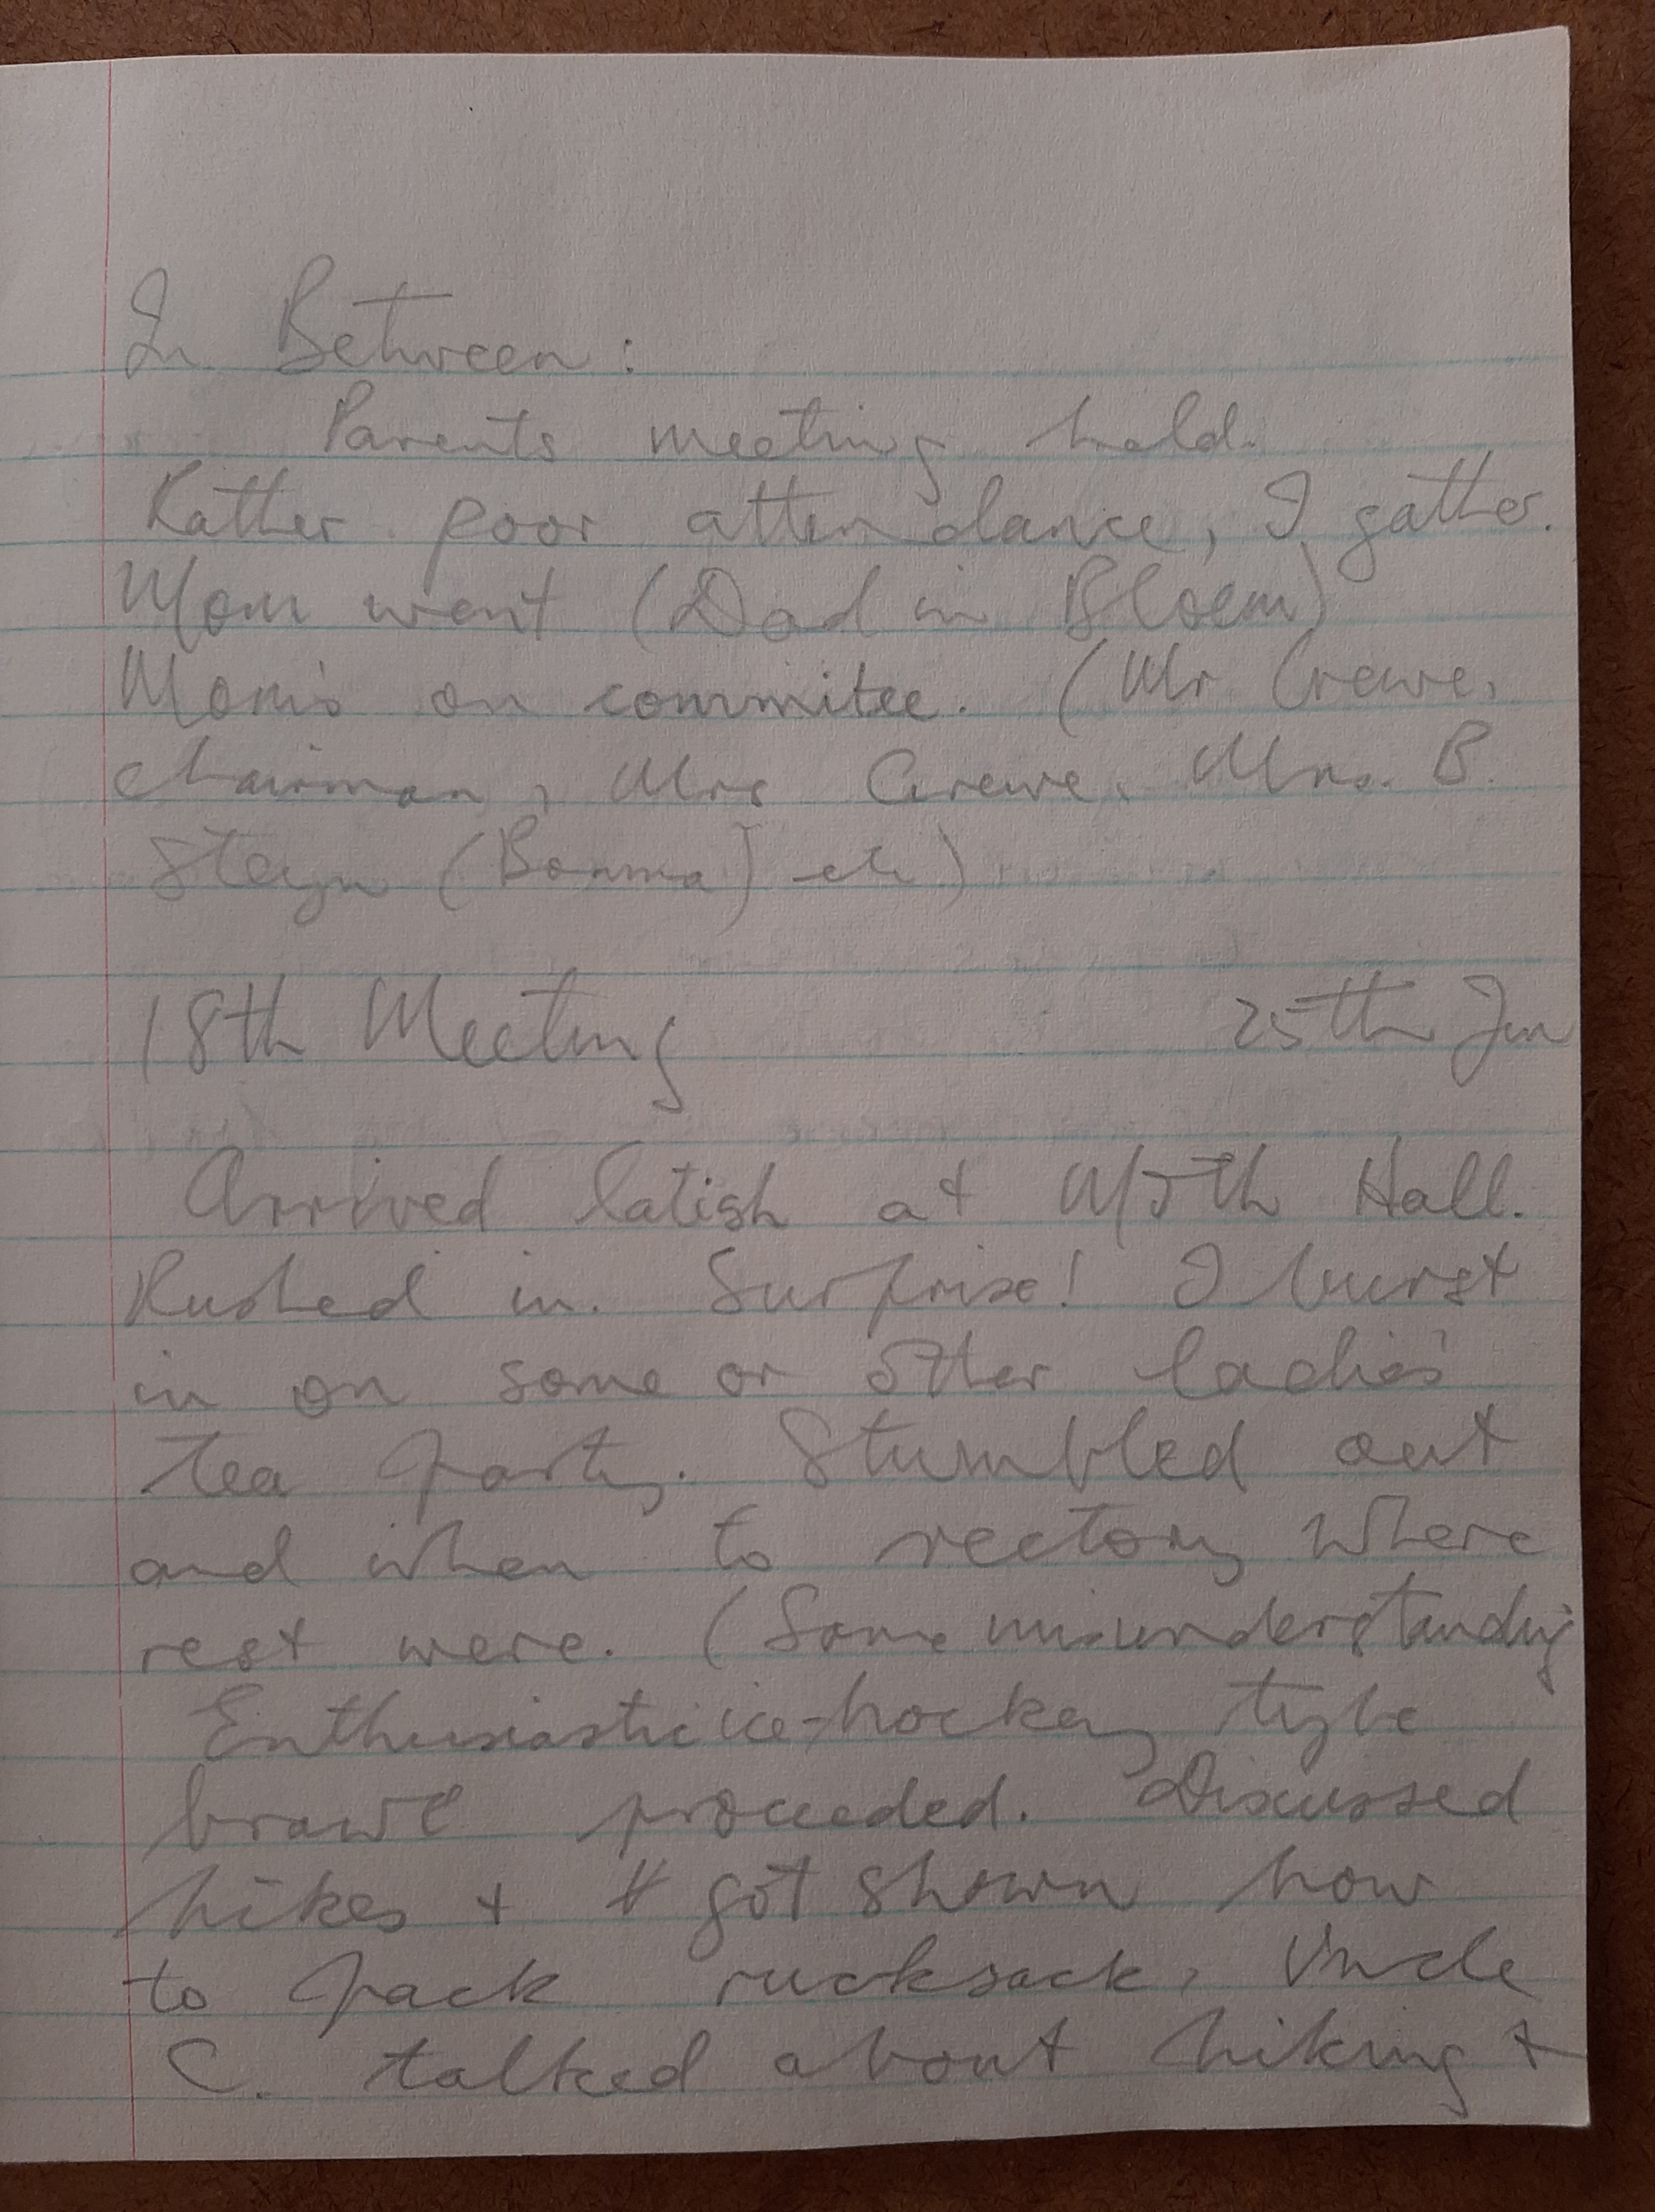 In Between:
Parents meeting held.
Rather poor attendance, I gather.
Mom went (Dad in Bloem)
Mom's on commitee. (Mr Crewe,
chairman, Mrs Crewe, Mrs. B.
Steyn (Bomma) etc)
18th Meeting 25th Jun
Arrived latish at MOTH Hall.
Rushed in. Surprise! I burst
in on some or other ladies'
tea party. Stumbled out
and when to rectory where
rest were. (Some misunderstanding
Enthusiastic ice-hockey type
brawl proceeded. Discussed
hikes + got shown how
to pack rucksack. Uncle
C. talked about hiking +